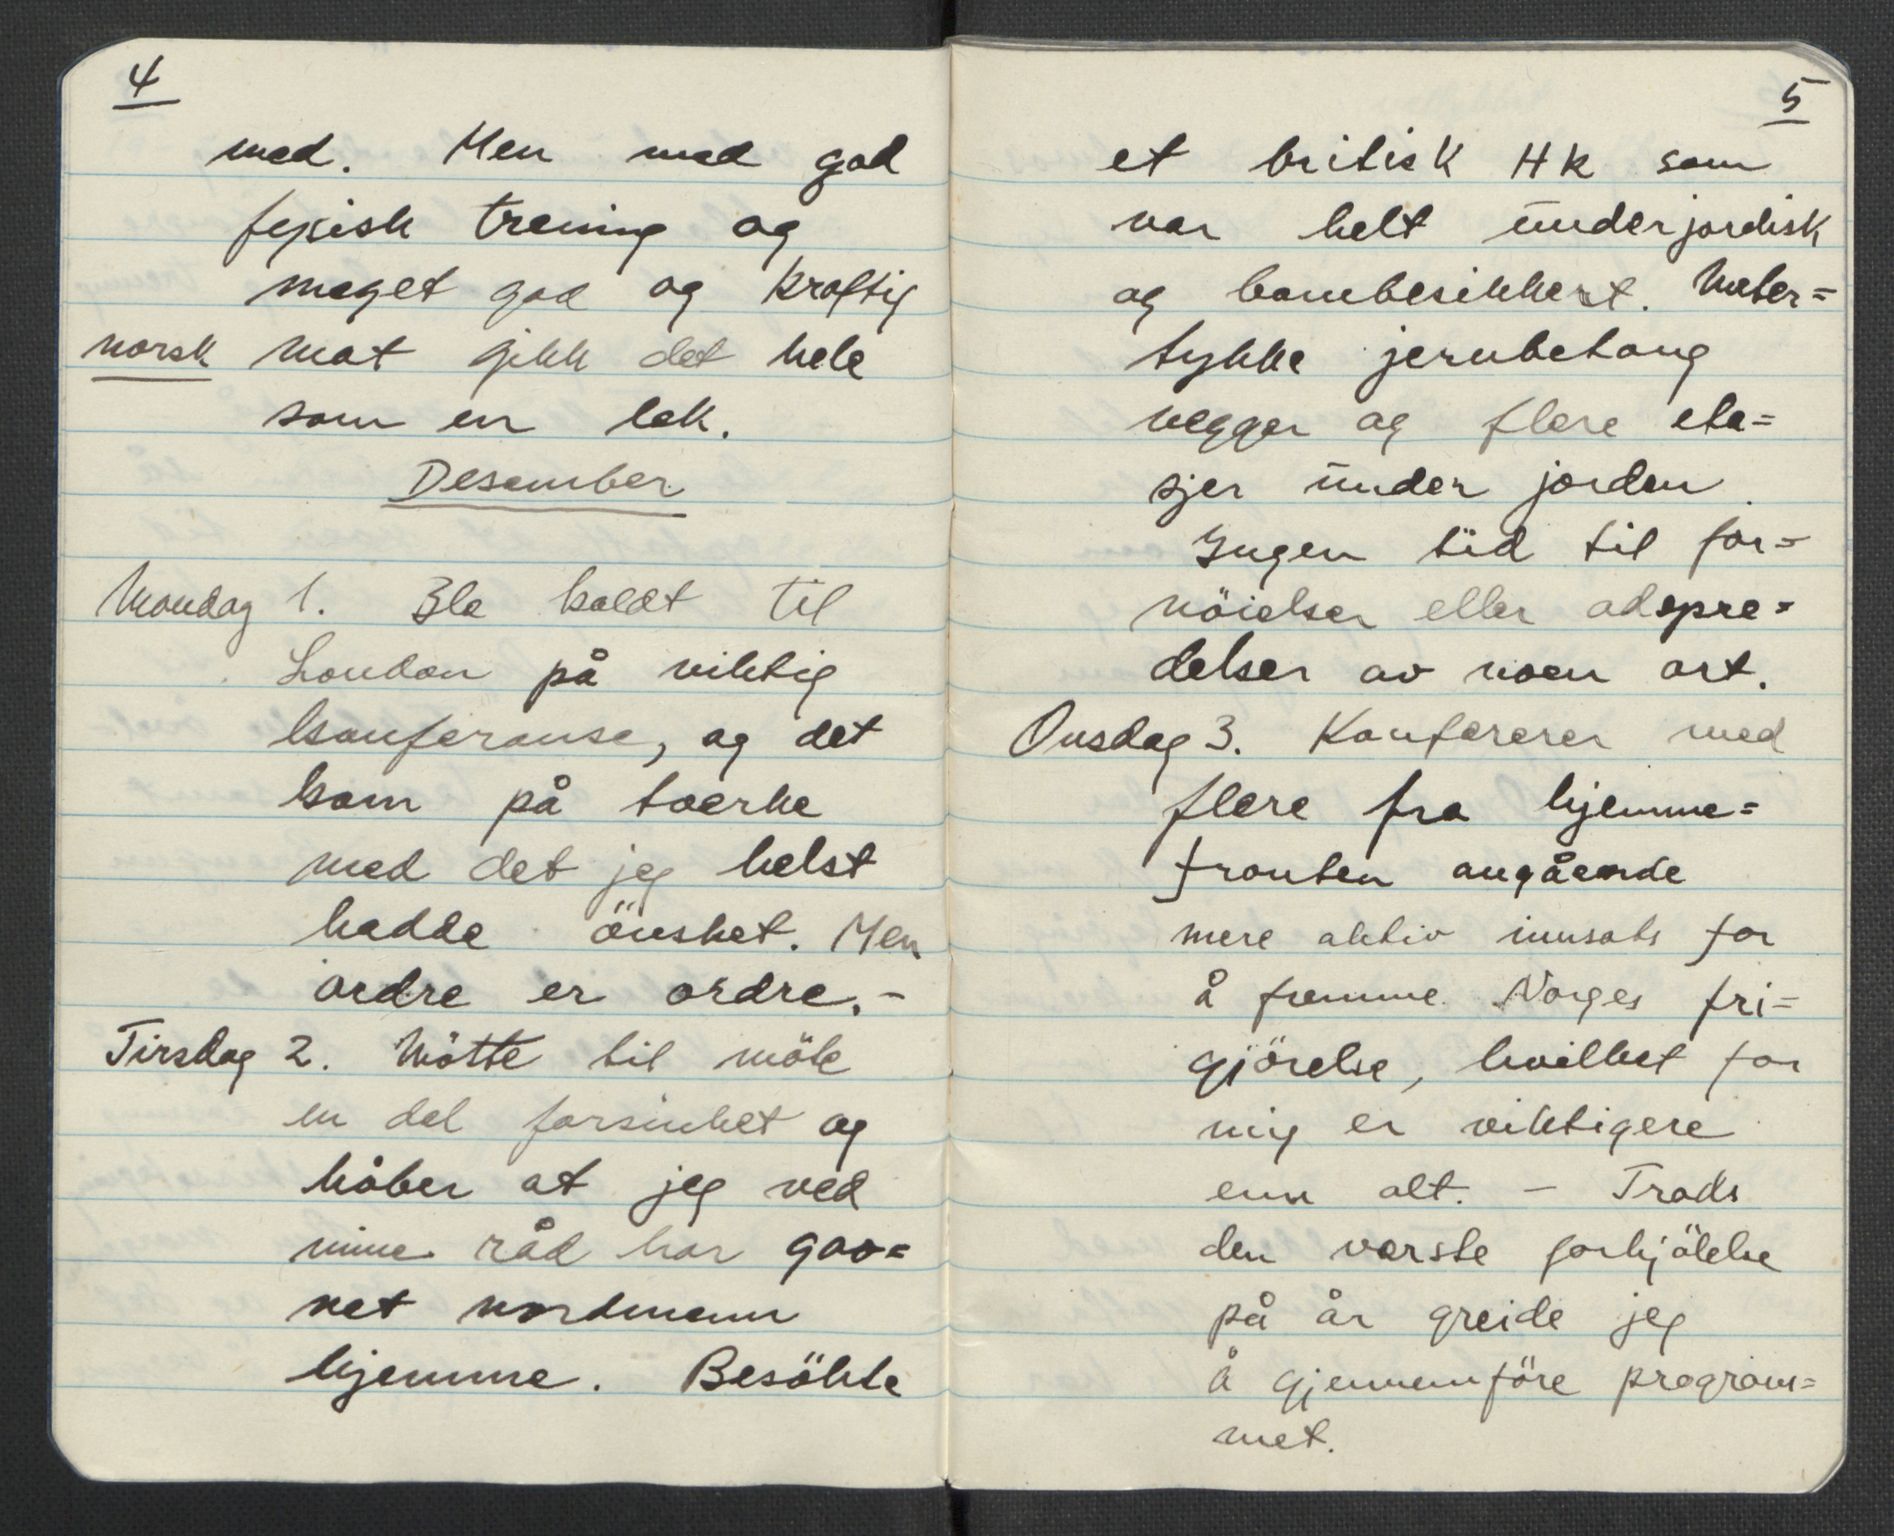 4
med. Men med god
fysisk trening og
meget god og kraftig
norsk mat gikk det hele
som en lek.
Desember
Mandag 1. Ble kaldt til
London på viktig
konferanse, og det
kom på tverke
med det jeg helst
hadde önsket. Men
ordre er ordre.-
Tirsdag 2. Mötte til möte
en del forsinket og
håber at jeg ved
mine råd har gav=
net nordmenn
hjemme. Besökte
5
et britisk HK som
var helt underjordisk
og bombesikkert. Meter=
tykke jernbetong
vegger og flere eta=
sjer under jorden.
Ingen tid til for=
nöielser eller adspre=
delser av noen art.
Onsdag 3. Konfererer med
flere fra hjemme=
fronten angående
mere aktiv innsats for
å fremme Norges fri=
gjörelse, hvilket for
mig er viktigere
enn alt. - Trods
den verste forkjölelse
på år greide jeg
å gjennemföre program=
met.